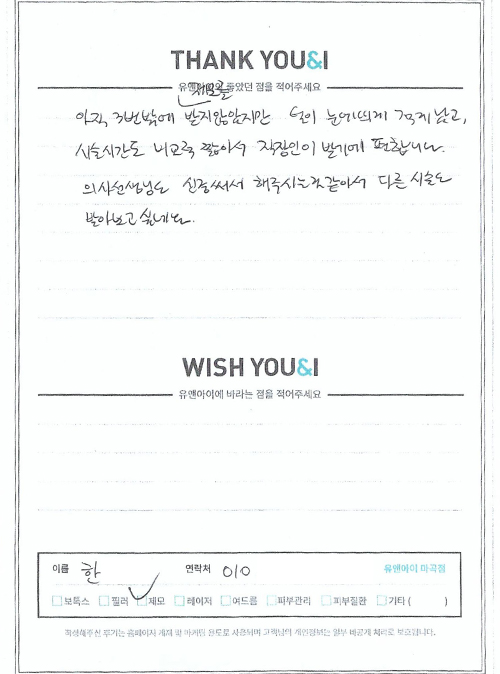 THANK YOU&I
유앤아이의 좋았던 점을 적어주세요
제모를
아직 3번밖에 받지않았지만 털이 눈에띄게 적게 남고,
시술시간도 비교적 짧아서 직장인이 받기에 편합니다.
의사선생님도 신경써서 해주시는것 같아서 다른 시술도
받아보고 싶네요.
WISH YOU&I
유앤아이에 바라는 점을 적어주세요
이름 한 연락처 010 유앤아이 마곡점
보톡스 필러 제모 레이저 여드름 피부관리 피부질환 기타 ( )
작성해주신 후기는 홈페이지 게재 및 마케팅 용도로 사용되며 고객님의 개인정보는 일부 비공개 처리로 보호됩니다.